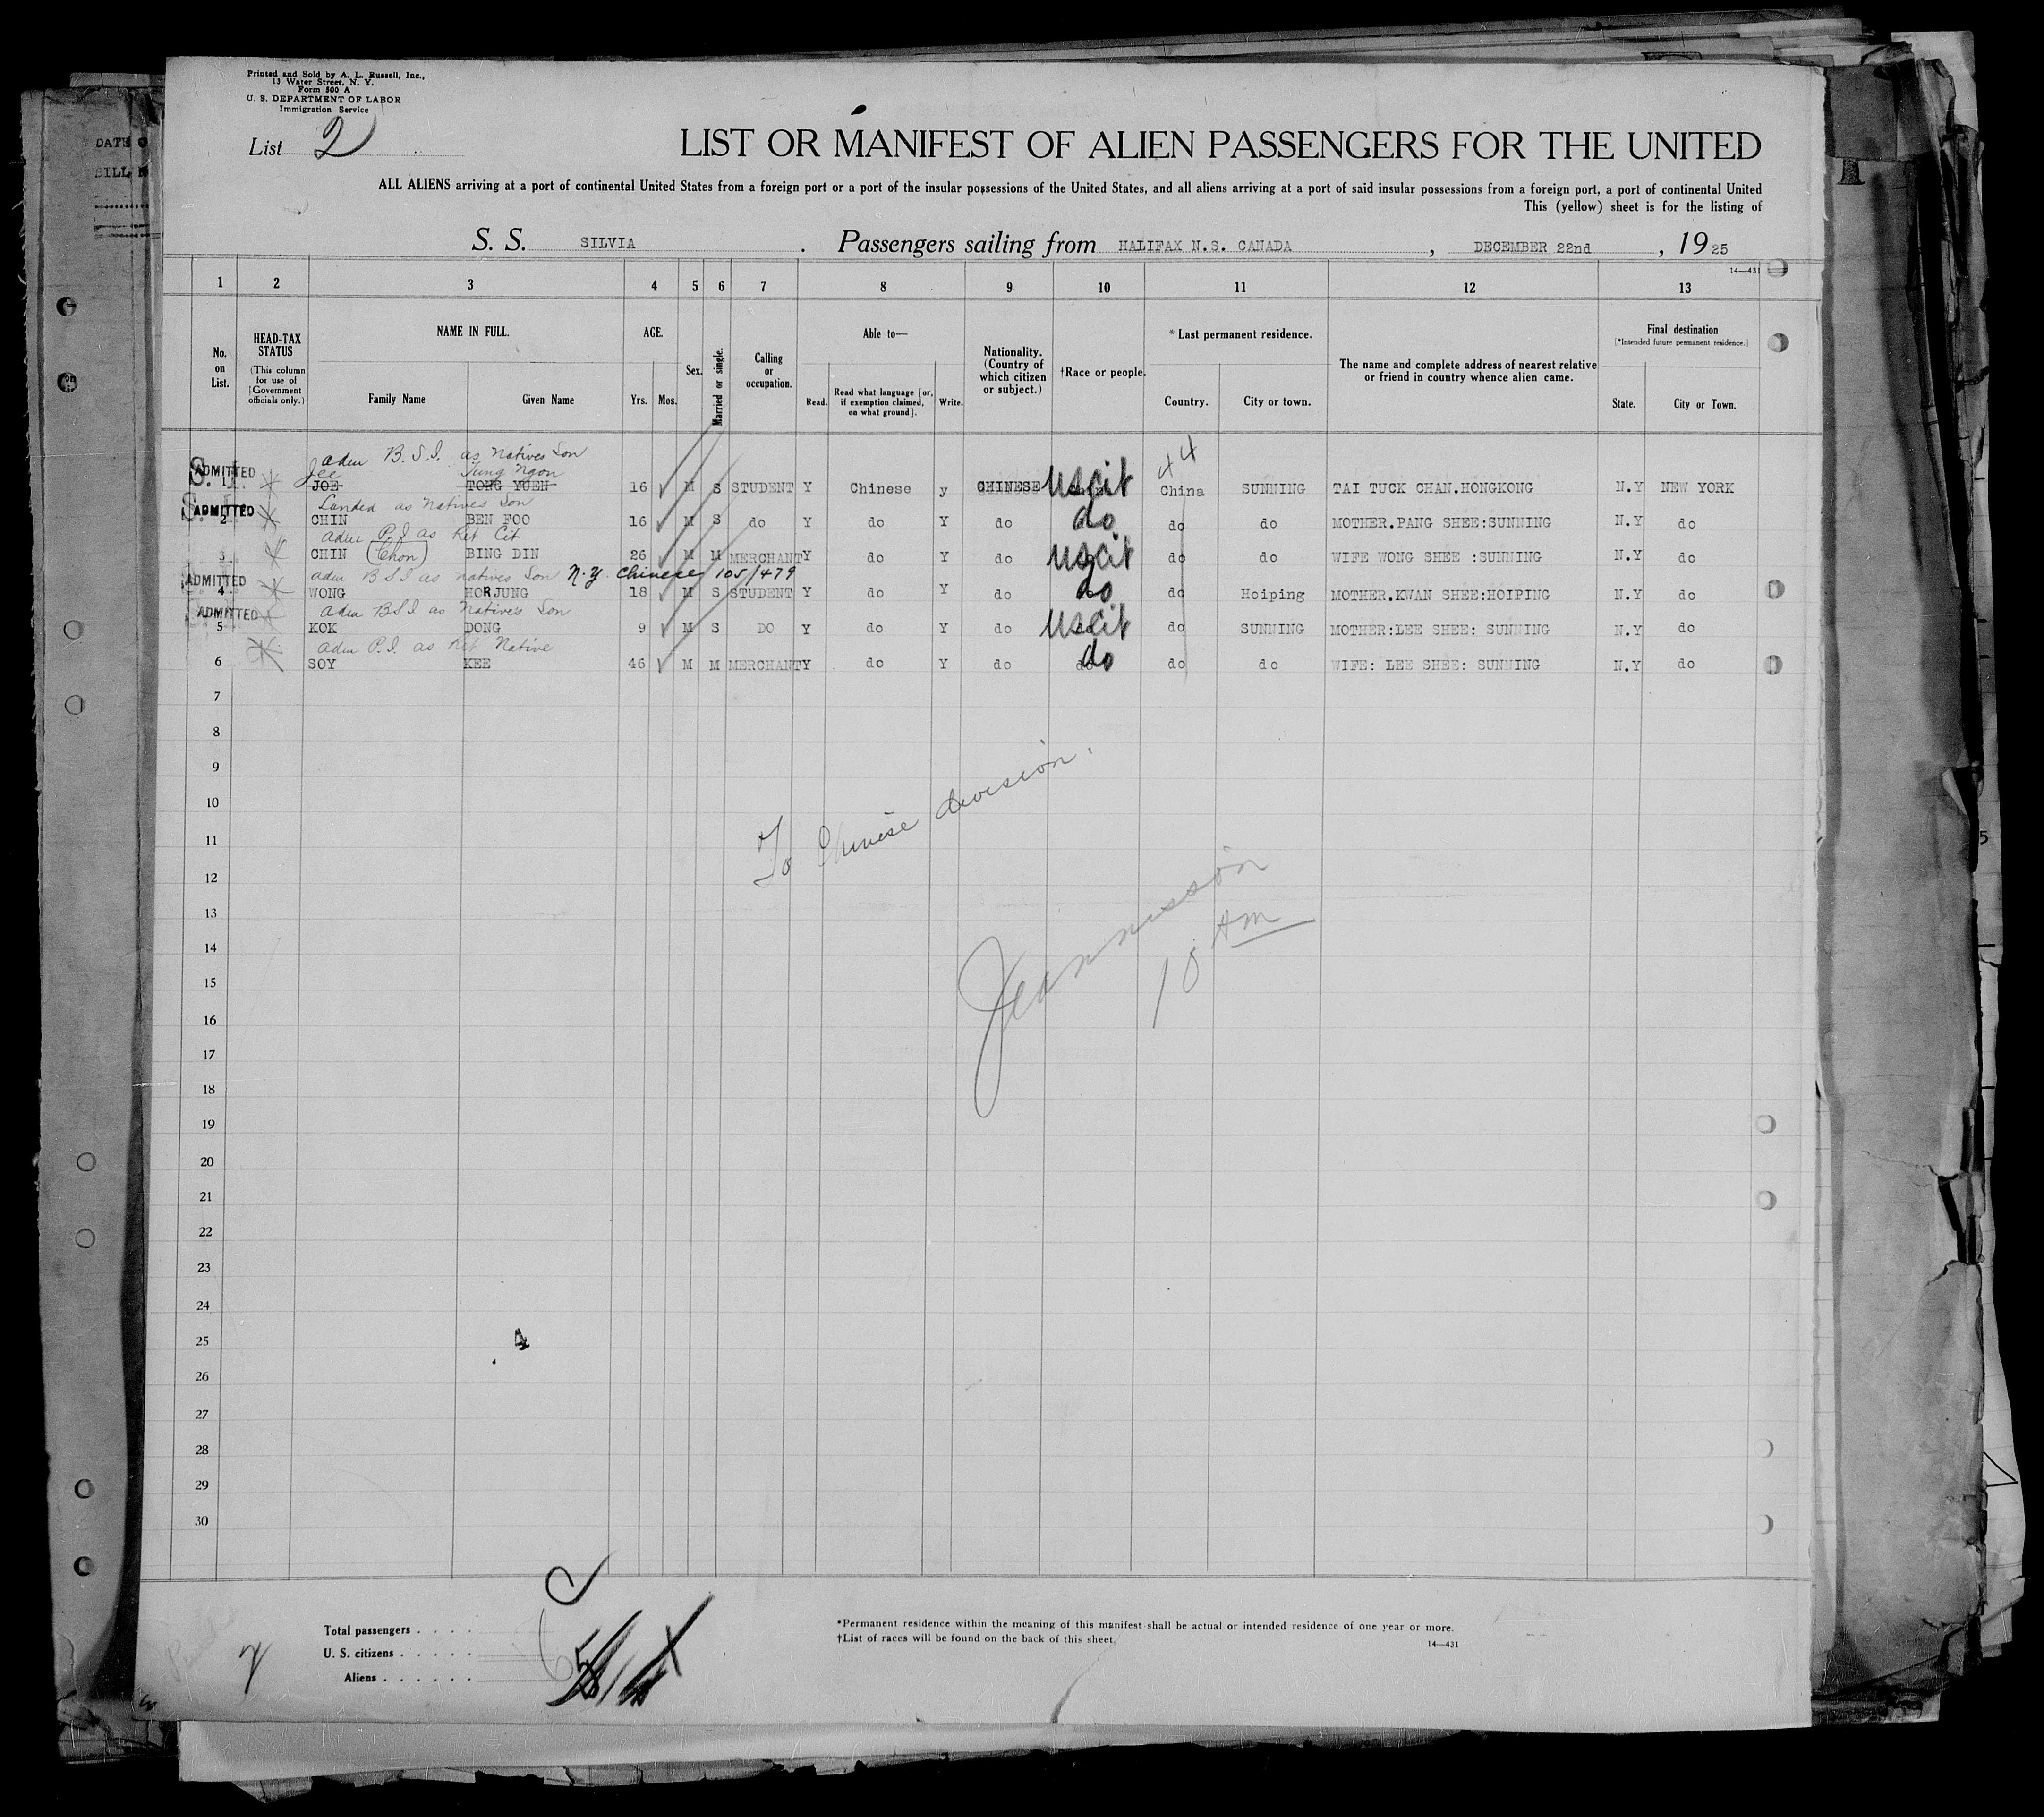 Printed and Sold by A. L. Russell, Inc.,
13 Water Street, N. Y.
Form 500 A
U. S. DEPARTMENT OF LABOR
Immigration Service
List 2
LIST OR MANIFEST OF ALIEN PASSENGERS FOR THE UNITED
ALL ALIENS arriving at a port of continental United States from a foreign port or a port of the insular possessions of the United States, and all aliens arriving at a port of said insular possessions from a foreign port, a port of continental United
This (yellow) sheet is for the listing of
S. S. SILVIA. Passengers sailing from HALIFAX N.S. CANADA, DECEMBER 22nd, 1925
14—431
1 2 3 4 5 6 7 8 9 10 11 12 13
No. on List.
HEAD-TAX STATUS (This column for use of Government officials only.)
NAME IN FULL. Family Name Given Name
AGE. Yrs. Mos.
Sex.
Married or single.
Calling or occupation.
Able to— Read. Read what language [or, if exemption claimed, on what ground]. Write.
Nationality. (Country of which citizen or subject.)
†Race or people.
*Last permanent residence. Country. City or town.
The name and complete address of nearest relative or friend in country whence alien came.
Final destination [*Intended future permanent residence.] State. City or Town.
adm B.S.I. as Natives Son
44
ADMITTED Jee Tung Ngon
1 JOE TONG YUEN 16 M S STUDENT Y Chinese y CHINESE US cit China SUNNING TAI TUCK CHAN.HONGKONG N.Y NEW YORK
Landed as Natives Son
ADMITTED
2 CHIN BEN FOO 16 M S do Y do Y do do do do MOTHER.PANG SHEE:SUNNING N.Y do
adm P.I as Ret Cit
3 CHIN (Chon) BING DIN 26 M M MERCHANT Y do Y do US cit do do WIFE WONG SHEE :SUNNING N.Y do
adm B S I as natives Son N.Y. Chinese 105/479
ADMITTED
4 WONG HORJUNG 18 M S STUDENT Y do Y do do do Hoiping MOTHER.KWAN SHEE:HOIPING N.Y do
ADMITTED adm BSI as Natives Son
5 KOK DONG 9 M S DO Y do Y do US cit do SUNNING MOTHER:LEE SHEE: SUNNING N.Y do
adm P.I. as Ret Native
6 SOY KEE 46 M M MERCHANT Y do Y do do do do WIFE: LEE SHEE: SUNNING N.Y do
7
8
9
10
11
12
13
14
15
16
17
18
19
20
21
22
23
24
25
26
27
28
29
30
To Chinese division.
10 AM
4
Total passengers
U. S. citizens
Aliens
*Permanent residence within the meaning of this manifest shall be actual or intended residence of one year or more.
†List of races will be found on the back of this sheet.
14—431